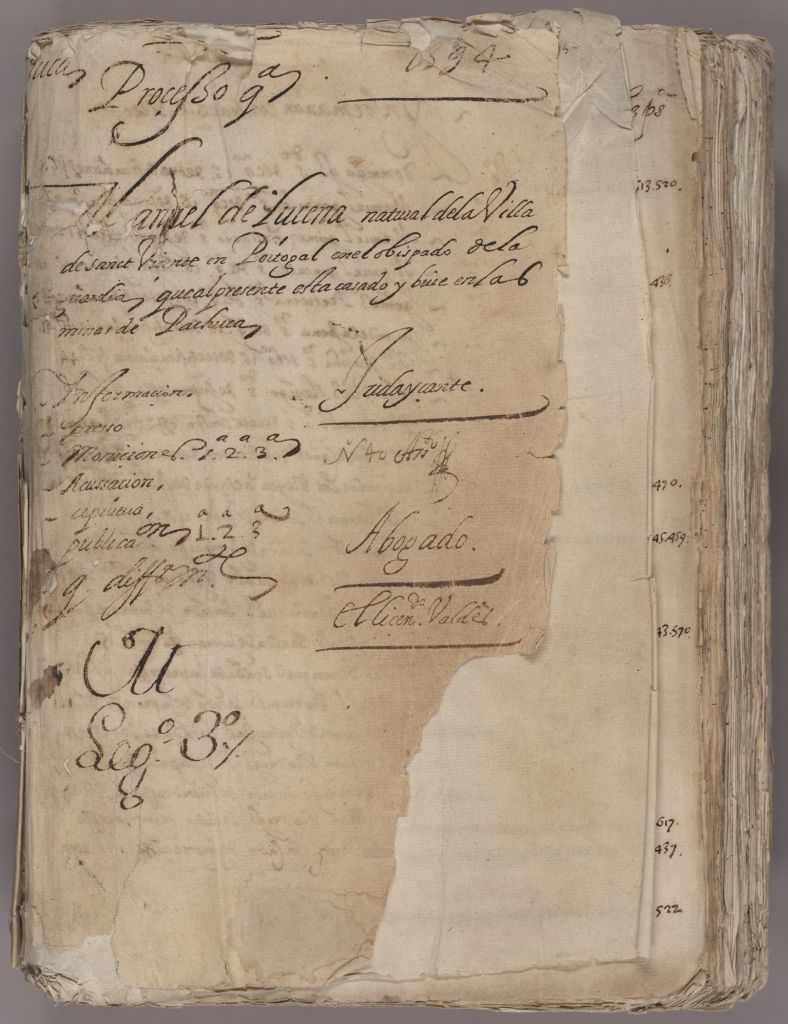 Processo qª
1594
Manuel de Lucena natural de la Villa
de Sanct Vicente en Portogal en el obispado de la
guardia, que al presente esta casado y bive en las
minas de Pachuca,
Judayzante.
- Informacion.
- preso
- Moniciones. 1.ª 2.ª 3.ª
- Acussacion,
- aprueva,
publica.on 1.ª 2.ª 3.ª
N 40
Abogado.
El licen.do Valdes.
Leg.º 3.º
13.520.
436.
470.
45.459.
43.570
617.
437.
522